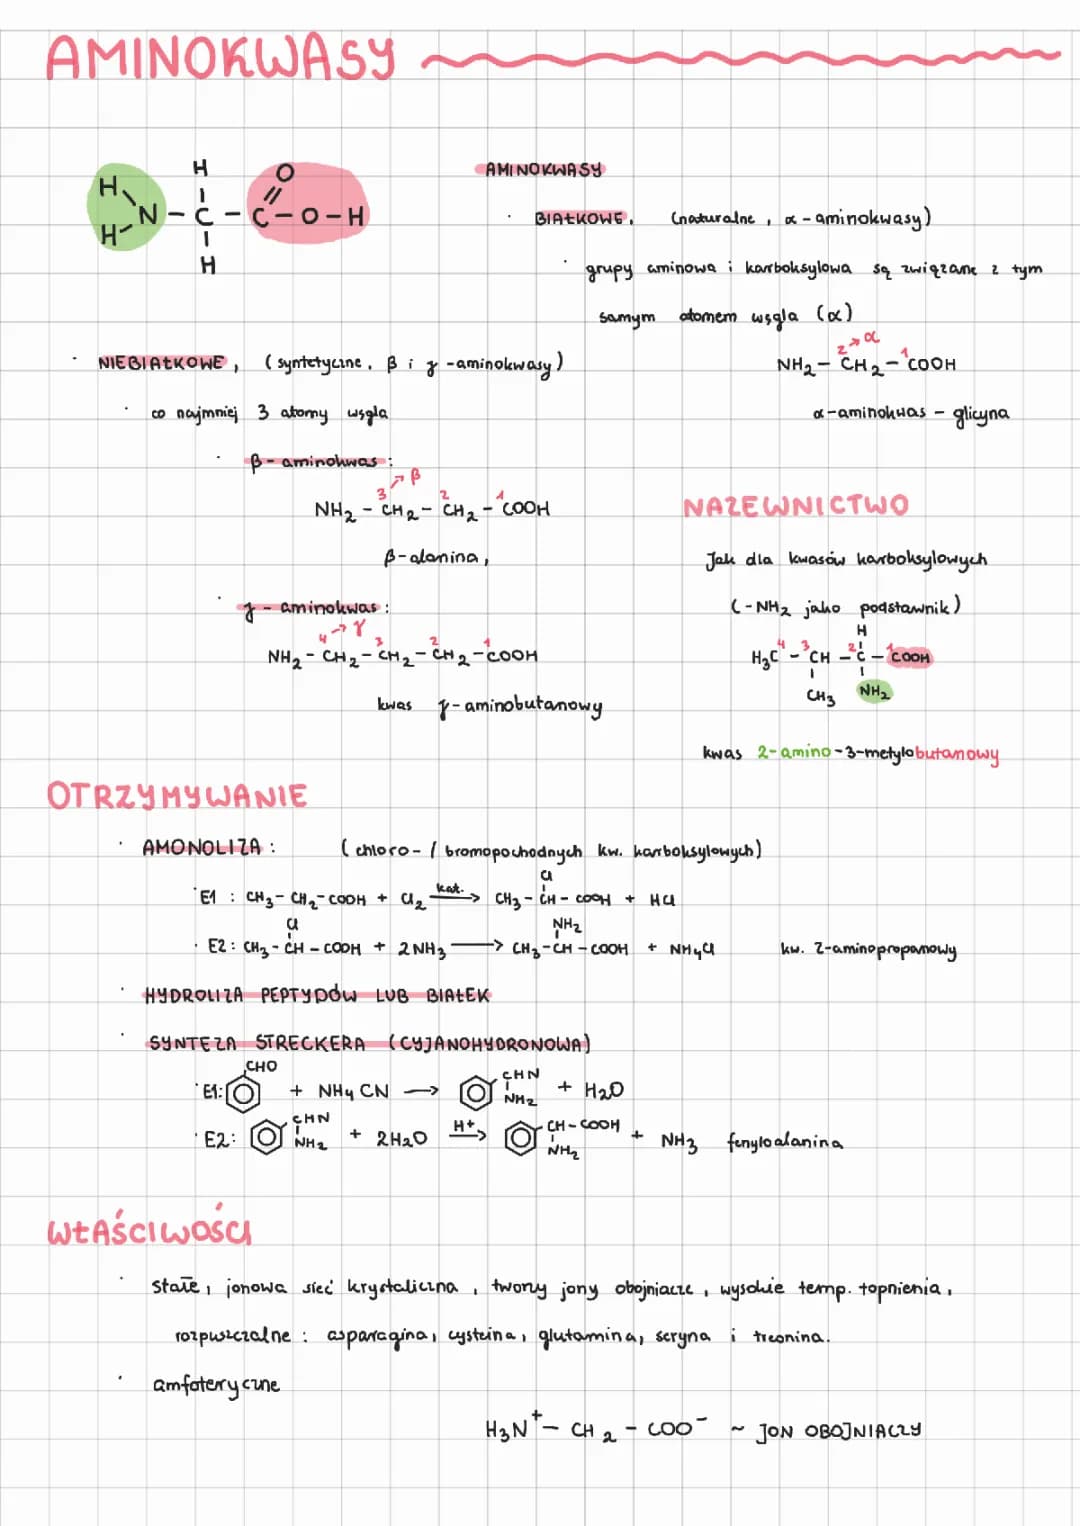 AMINOKWASY
H H O
N - C - C - O - H
H H
AMINOKWASY
· BIAŁKOWE, (naturalne, α - aminokwasy)
· grupy aminowa i karboksylowa są związane z tym
samym atomem węgla (α)
2→α 1
NH₂ - CH₂ - COOH
α-aminokwas - glicyna
· NIEBIAŁKOWE, (syntetyczne, β i γ -aminokwasy)
· co najmniej 3 atomy węgla
· β - aminokwas :
3→β 2 1
NH₂ - CH₂ - CH₂ - COOH
β-alanina,
· γ - aminokwas :
4→γ 3 2 1
NH₂ - CH₂ - CH₂ - CH₂ - COOH
kwas γ-aminobutanowy
NAZEWNICTWO
Jak dla kwasów karboksylowych
(-NH₂ jako podstawnik)
H
4 3 2 1
H₃C - CH - C - COOH
CH₃ NH₂
kwas 2-amino-3-metylobutanowy
OTRZYMYWANIE
· AMONOLIZA : (chloro- / bromopochodnych kw. karboksylowych)
Cl
· E1 : CH₃ - CH₂ - COOH + Cl₂ kat.→ CH₃ - CH - COOH + HCl
Cl NH₂
· E2 : CH₃ - CH - COOH + 2NH₃ → CH₃ - CH - COOH + NH₄Cl kw. 2-aminopropanowy
· HYDROLIZA PEPTYDÓW LUB BIAŁEK
· SYNTEZA STRECKERA (CYJANOHYDRONOWA)
CHO CHN
· E1: + NH₄CN → NH₂ + H₂O
CHN CH-COOH
· E2: NH₂ + 2H₂O H+→ NH₂ + NH₃ fenyloalanina
WŁAŚCIWOŚCI
· stałe, jonowa sieć krystaliczna, tworzy jony obojniacze, wysokie temp. topnienia,
rozpuszczalne : asparagina, cysteina, glutamina, seryna i treonina.
· amfoteryczne
H₃N⁺ - CH₂ - COO⁻ ~ JON OBOJNIACZY